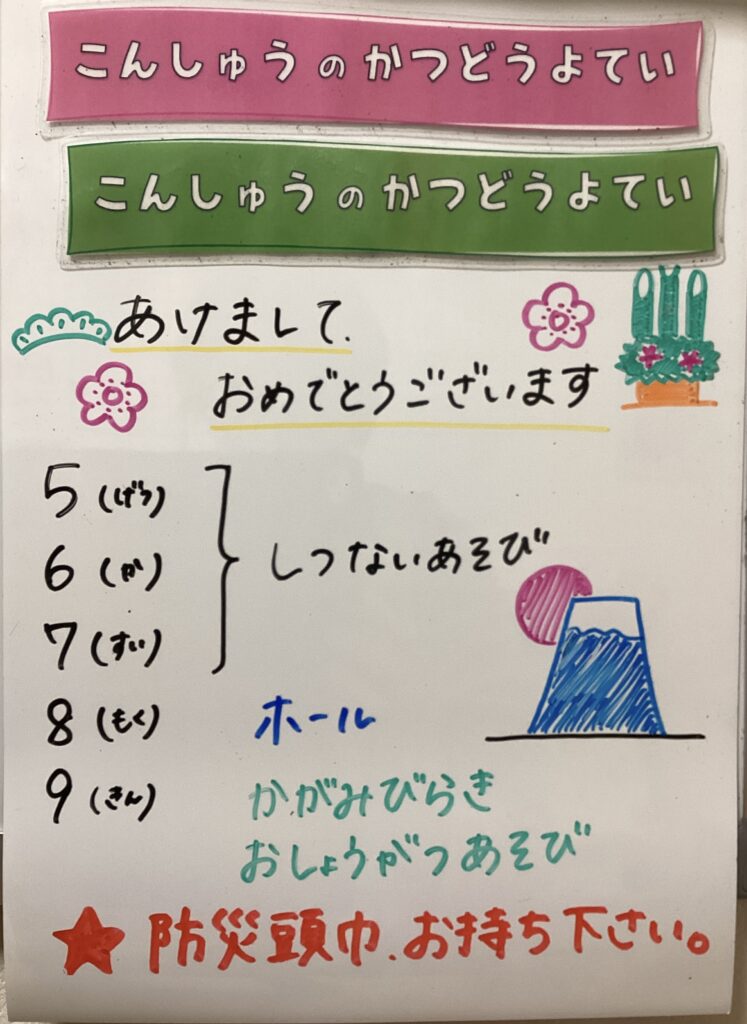 こんしゅうのかつどうよてい
こんしゅうのかつどうよてい
あけまして
おめでとうございます
5(げつ)
6(か)
7(すい)
しつないあそび
8(もく) ホール
9(きん) かがみびらき
おしょうがつあそび
★防災頭巾、お持ち下さい。